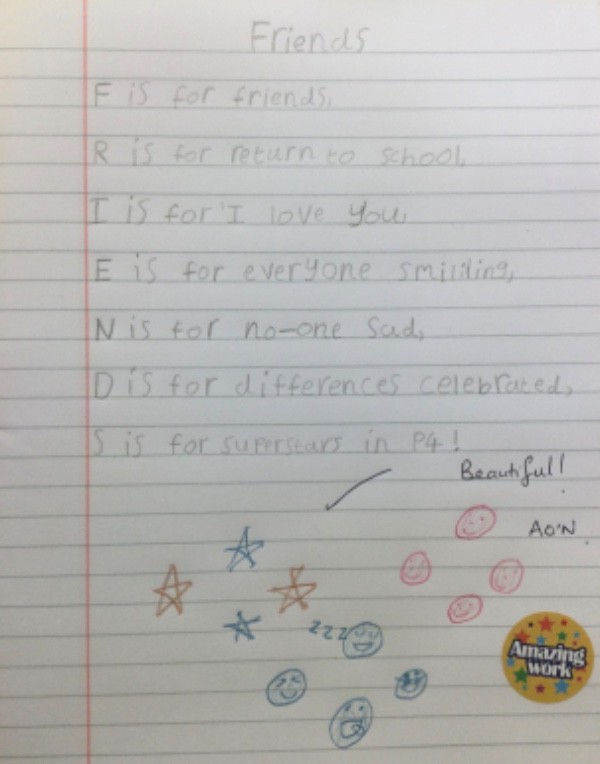 Friends
F is for friends,
R is for return to school,
I is for 'I love you,
E is for everyone smililing,
N is for no-one sad,
D is for differences celebrated,
S is for superstars in P4!
Beautiful!
AO'N
zzz
Amazing
work